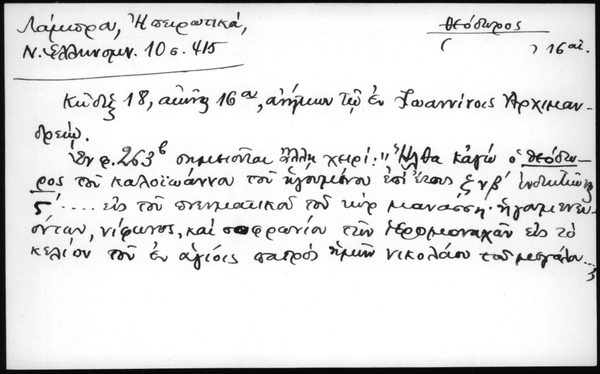 Λάμπρου, Ἠπειρωτικά,
Ν. Ἑλληνομν. 10 σ. 415
Θεόδωρος
( ) 16 αἰ.
Κῶδιξ 18, αἰῶνος 16ου, ἀνήκων τῷ ἐν Ἰωαννίνοις Ἀρχιμαν-
δρείῳ.
Ἐν φ. 263β σημειοῦται ἄλλῃ χειρί: "Ἦλθα καγώ ὁ Θεόδω-
ρος τοῦ καλοϊωάννου τοῦ ἡγουμένου ἐπί ἔτους ζνβ' ἰνδικτιῶνος
ς'..... εἰς τοῦ πνευματικοῦ τοῦ κύρ μανάσση. ἡγουμενεu-
όντων, νίφωνος, καί σοφρωνίου τῶν ἱερομοναχῶν εἰς τό
κελίον τοῦ ἐν ἁγίοις πατρός ἡμῶν νικολάου τοῦ μεγάλου...